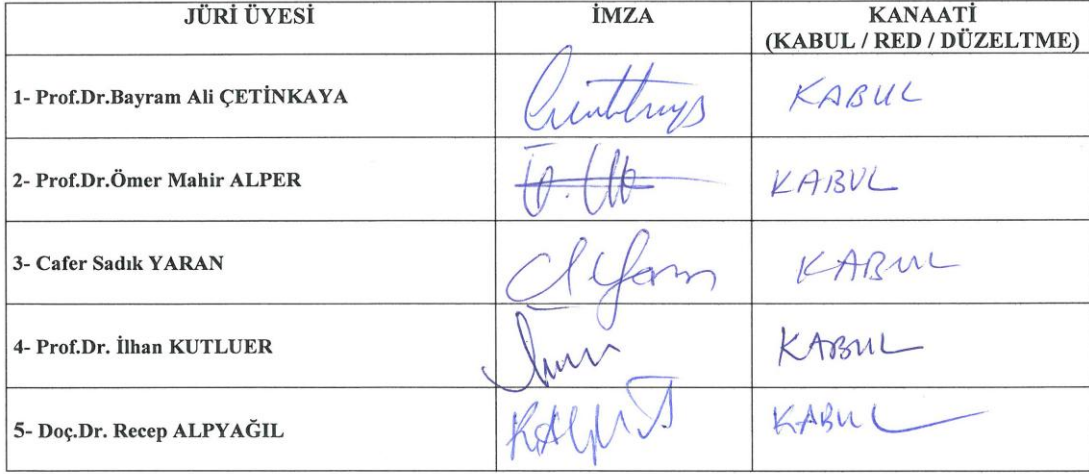 JÜRİ ÜYESİ İMZA KANAATİ
(KABUL / RED / DÜZELTME)
1- Prof.Dr.Bayram Ali ÇETİNKAYA KABUL
2- Prof.Dr.Ömer Mahir ALPER KABUL
3- Cafer Sadık YARAN KABUL
4- Prof.Dr. İlhan KUTLUER KABUL
5- Doç.Dr. Recep ALPYAĞIL KABUL